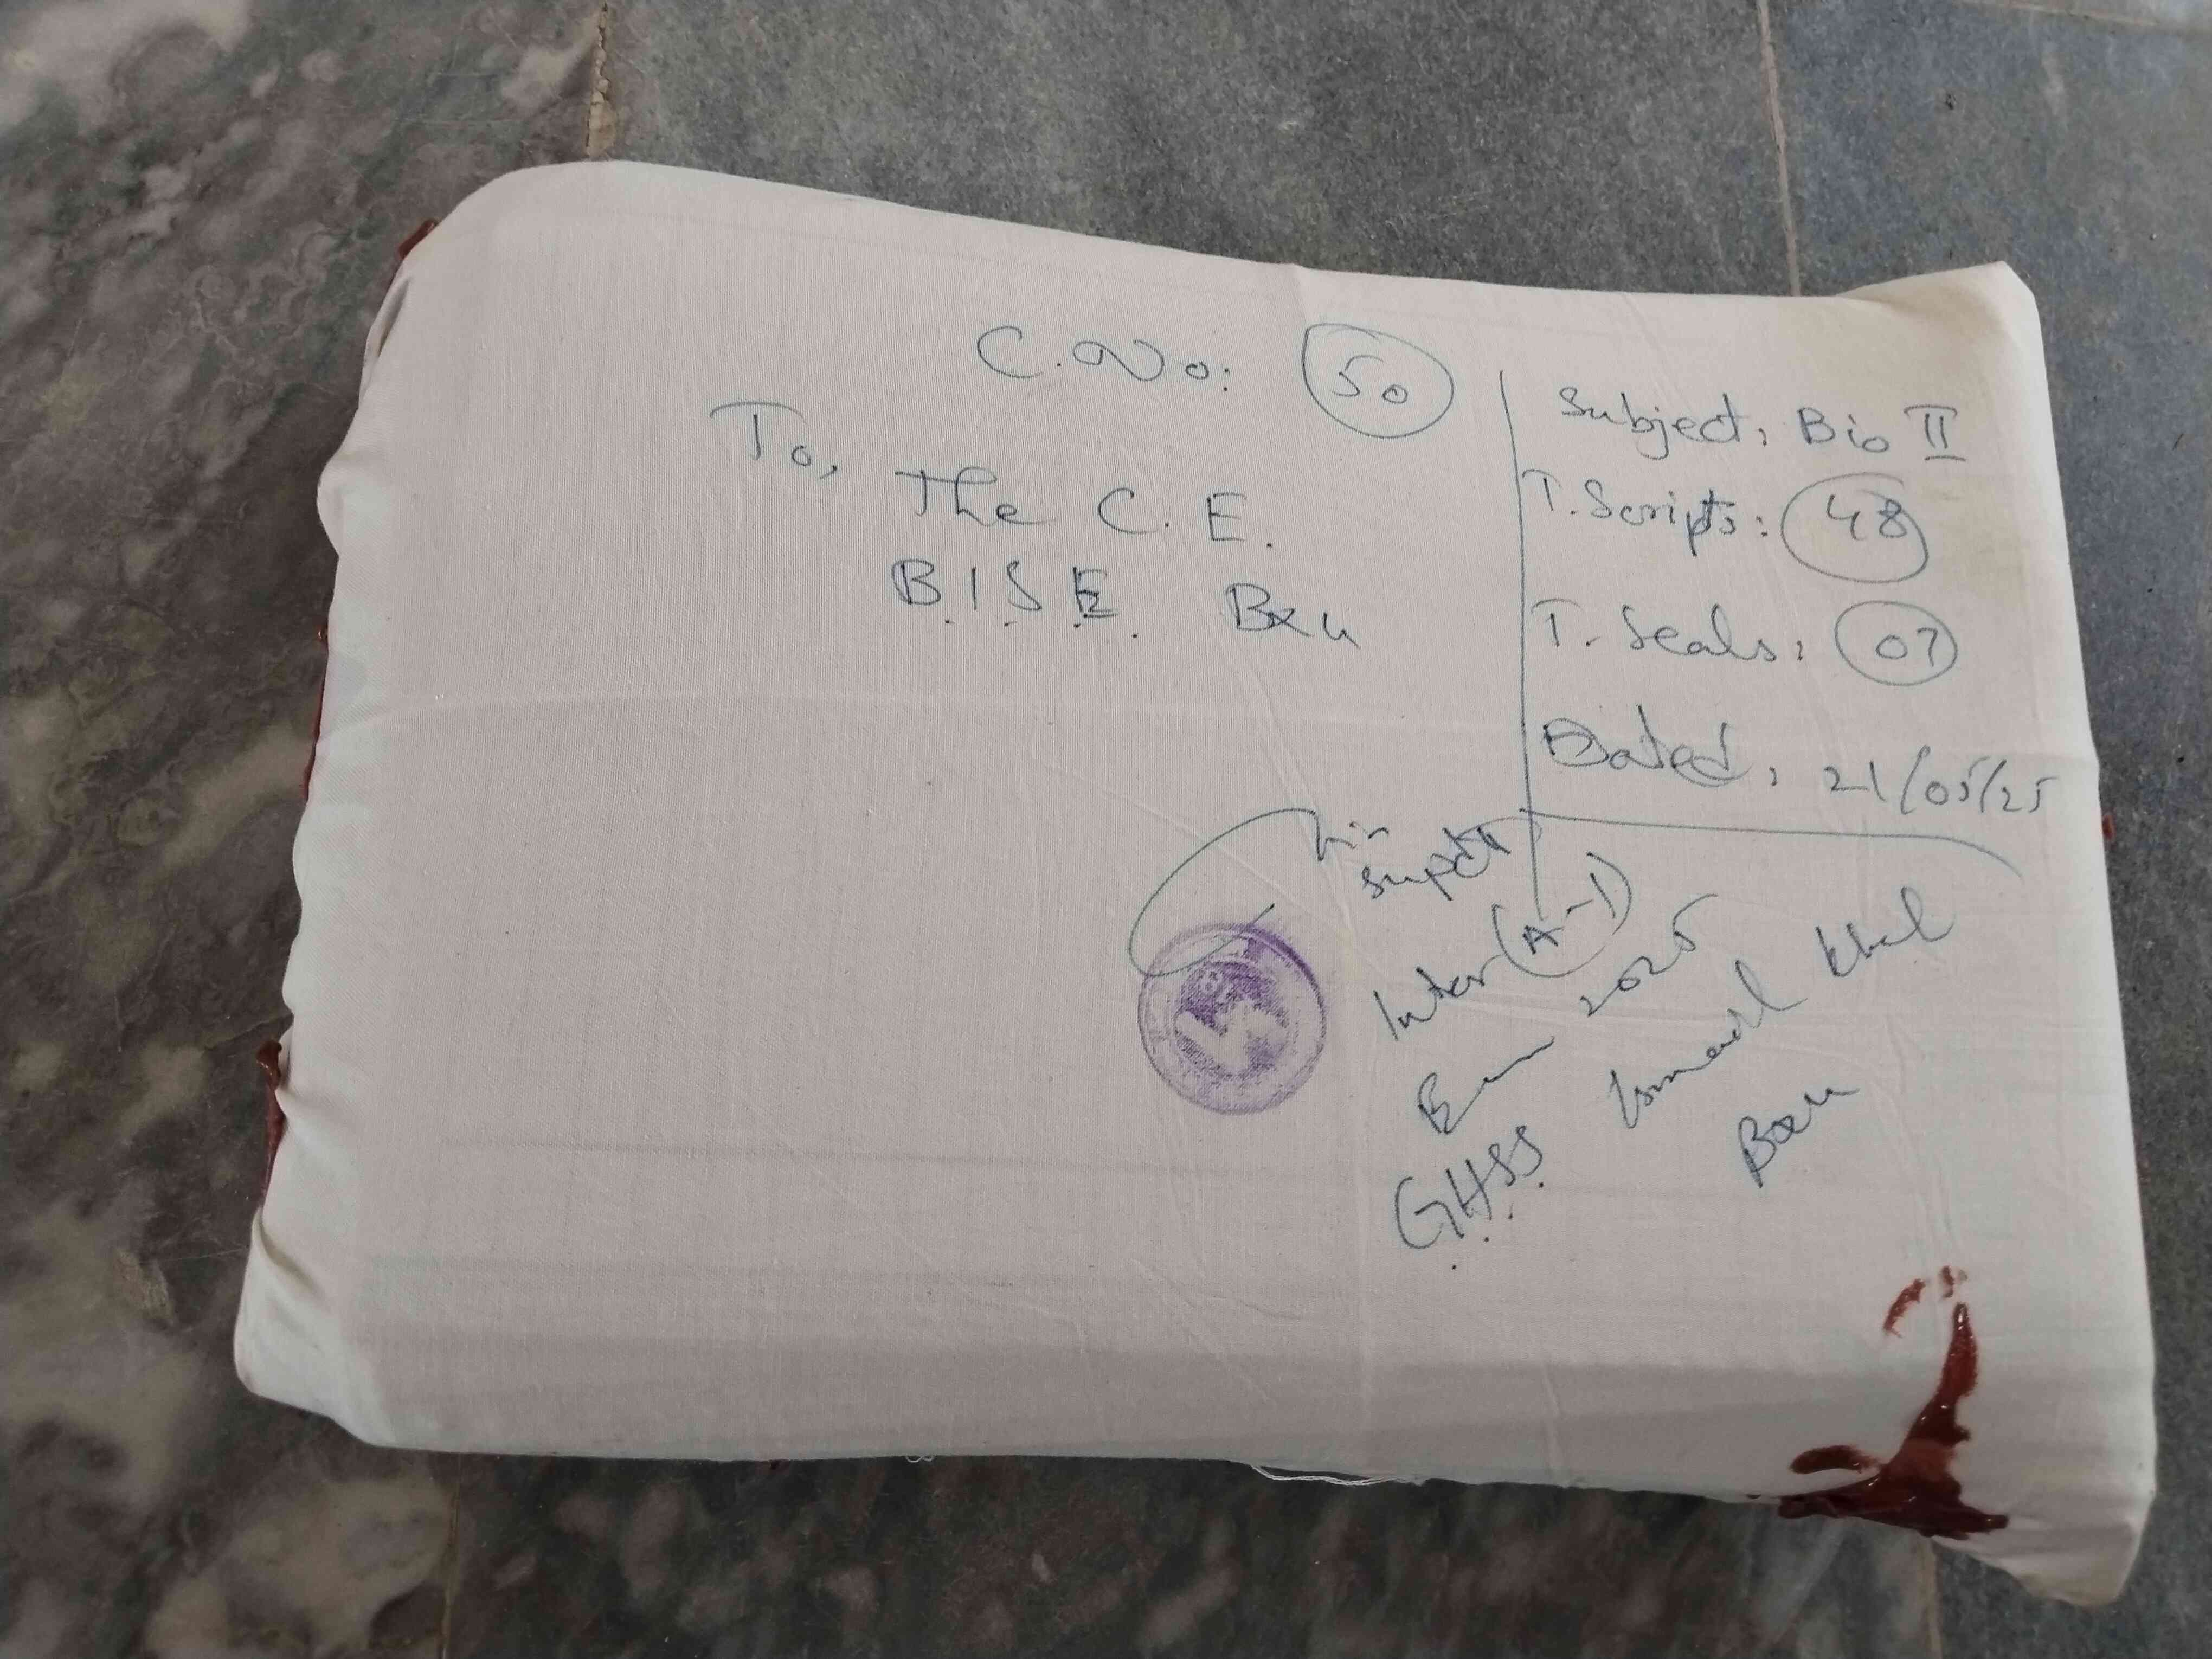 C.No: 50
To,
The C.E.
B.I.S.E. Bxu
Subject: Bio II
T. Scripts: 48
T. Seals: 07
Dated: 21/05/25
Supdtt
Inter (A-I)
2025
GHSS Ismail Khel
Bxu